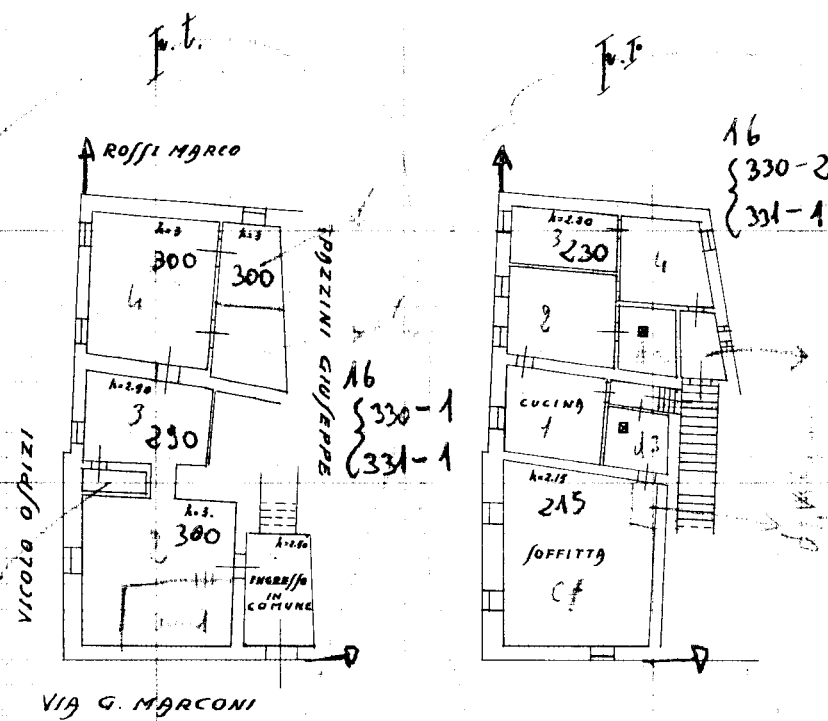 P. t.
ROSSI MARCO
h=3
300
h=3
300
4
SPOZZINI GIUSEPPE
16
330-1
331-1
h=2.90
3
290
VICOLO OSPIZI
h=3.
300
1
h=2.90
INGRESSO
IN
COMUNE
VIA G. MARCONI
P. I°
16
330-2
331-1
h=2.30
3
230
4
2
CUCINA
1
13
h=2.15
215
SOFFITTA